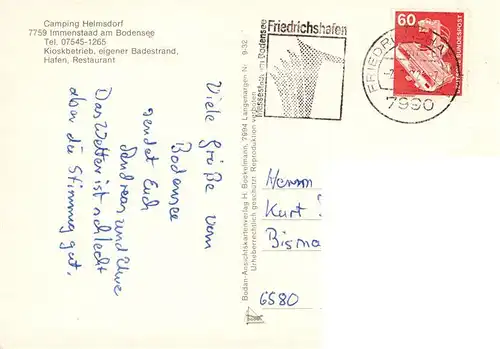 Camping Helmsdorf
7759 Immenstaad am Bodensee
Tel. 07545-1265
Kioskbetrieb, eigener Badestrand,
Hafen, Restaurant
Viele Grüße vom
Bodensee
sendet Euch
Andreas und Uwe
Das Wetter ist schlecht
aber die Stimmung gut.
Bodan-Ansichtskartenverlag H. Bockelmann, 7994 Langenargen Nr. 9-32
Urheberrechtlich geschützt. Reproduktion verboten
Friedrichshafen
Messestadt am Bodensee
60
DEUTSCHE BUNDESPOST
7990
Herrn
Kurt
Bisma
6580